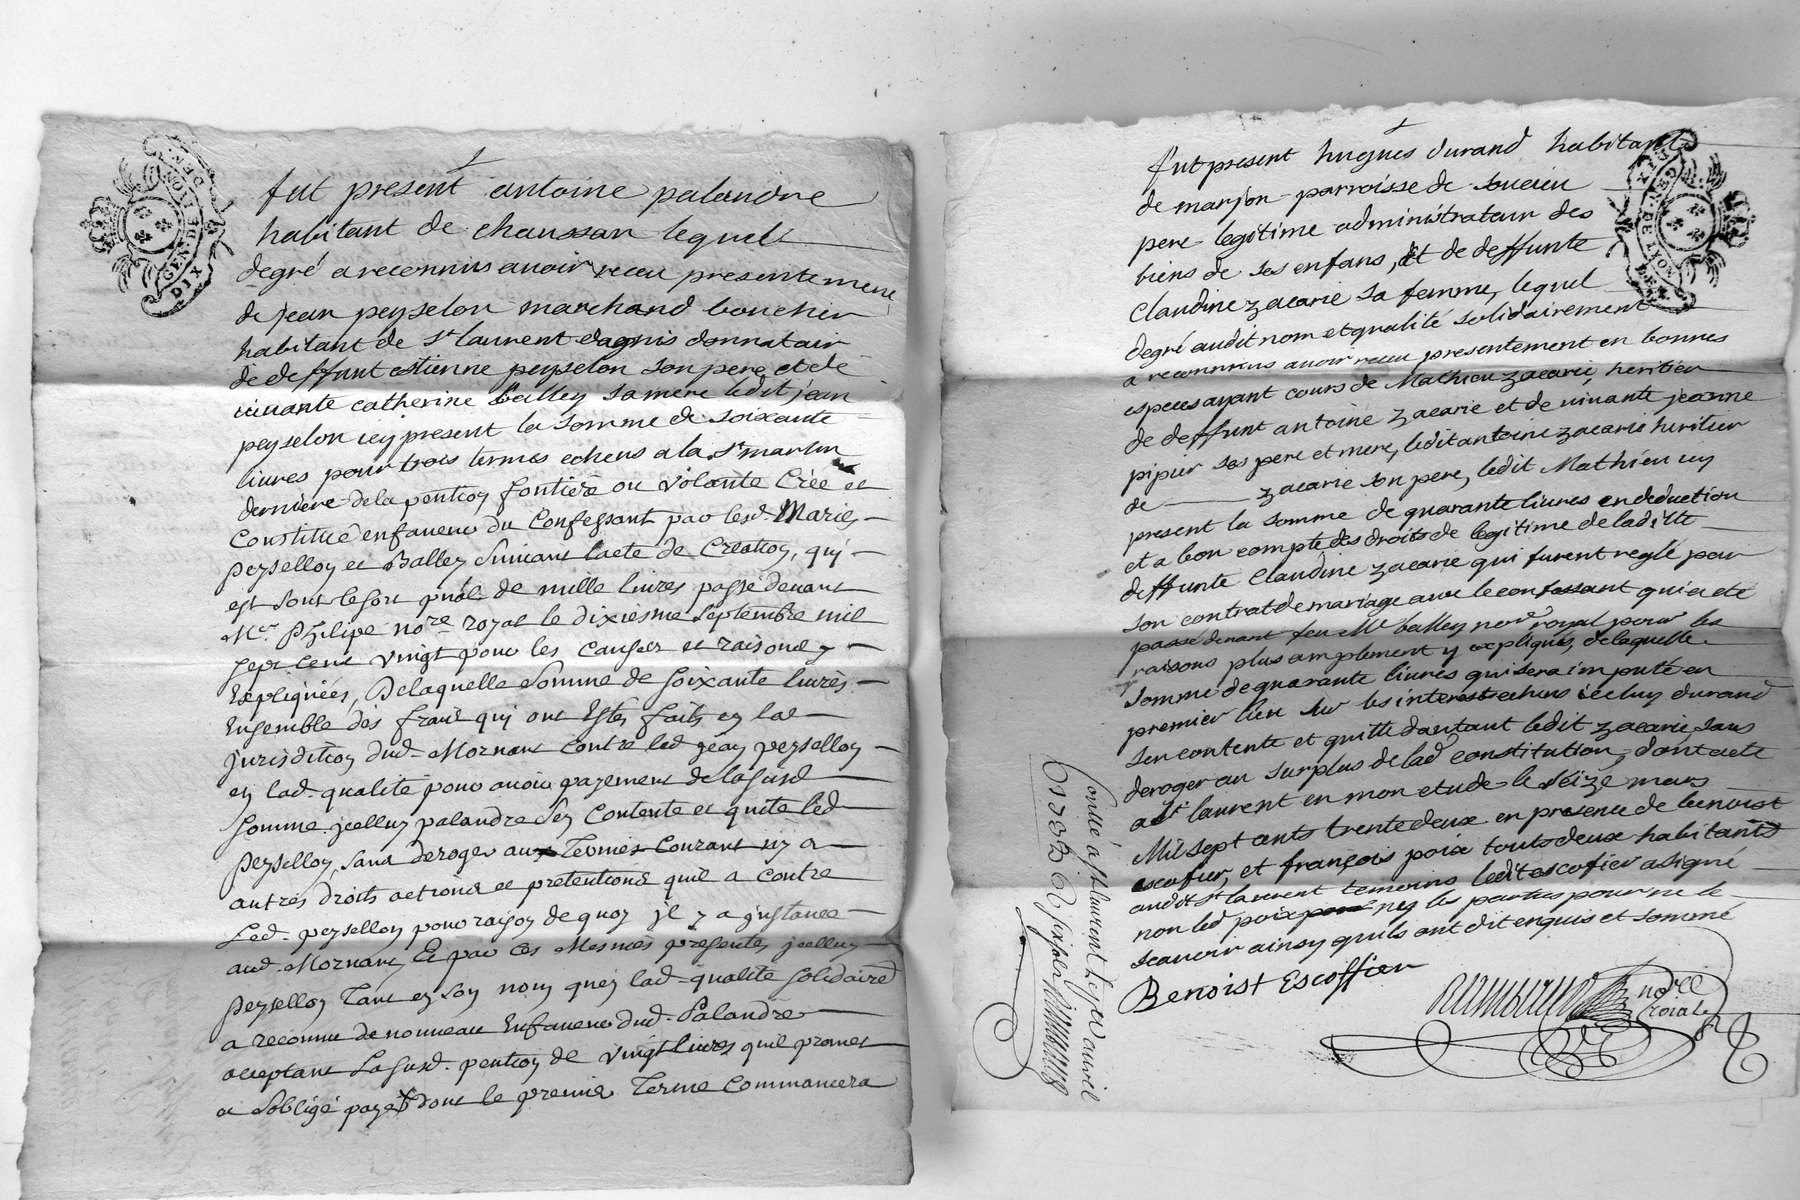 GEN. DE LION
DIX DEN.
fut present antoine palandre
habitant de chaussan lequel
degré a reconnus avoir receu presentement
de jean peyselon marchand boucher
habitant de st laurent dagnis donnatair
de deffunt estienne peyselon son pere et de
vivante catherine balley sa mere ledit jean
peyselon icy present la somme de soixante
livres pour trois termes echeus a la st martin
derniere de la pention fontiere ou volante Créé et
Constitué enfaveur du Confessant par lesd. Maries
peysellon et Balley suivant lacte de Creation, qui
est sous le sort pnal de mille livres passé devant
Mre. Philipe nore. royal le dixiesme septembre mil
sept cent vingt pour les causes et raisons y
Expliquées, Delaquelle somme de soixante livres
Ensemble des frais qui ont Estés faits en la
jurisdition dud. Mornant contre led jean peysellon
en lad. qualité pour avoir payement de lasusd
somme jcelluy palandre sen Contente et quitte led
peysellon, sans deroger aux Termes Courant ny a
autres droits actions et pretentions quil a contre
Led. peysellon pour raison de quoy jl y a jnstance
aud. Mornant, Et par ces Mesmes presentes jcelluy
peysellon tant en son nom quen lad. qualité solidaire
a reconnu de nouveau Enfaveur dud. Palandre
aceptant La susd. pention de vingt livres quil promet
et soblige payer dont le premier Terme Commancera
GEN. DE LION
DIX DEN.
fut present hugues durand habitant
de marjon parroisse de soucieu
pere legitime administrateur des
biens de ses enfans, Et de deffunte
Claudine zacarie sa femme, lequel
degré audit nom et qualité solidairement
a reconnus avoir receu presentement en bonnes
especes ayant cours de Mathieu zacarie, heritier
de deffunt antoine zacarie et de vivante jeanne
pipier ses pere et mere, ledit antoine zacarie heritier
de zacarie son pere, ledit Mathieu icy
present la somme de quarante livres en deduction
et a bon compte des droits de legitime de laditte
deffunte Claudine zacarie qui furent reglé par
son contrat de mariage avec le confessant qui a eté
passé devant feu Me balley nore royal pour les
raisons plus amplement y expliqués, de laquelle
somme de quarante livres qui sera imputé en
premier lieu sur les interest echeus icelluy durand
sen contente et quitte dautant ledit zacarie sans
deroger au surplus de lad constitution, dont acte
a st laurent en mon etude le seize mars
Mil sept cents trente deux en presence de benoist
escofier, et françois poix touts deux habitants
audit st laurent temoins ledit escofier a signé
non led poix ny les parties pour ne le
scavoir ainsy quils ont dit enquis et sommé
Benoist Escoffier
nore
roial
Conllé a st laurent le per d'avril
1732